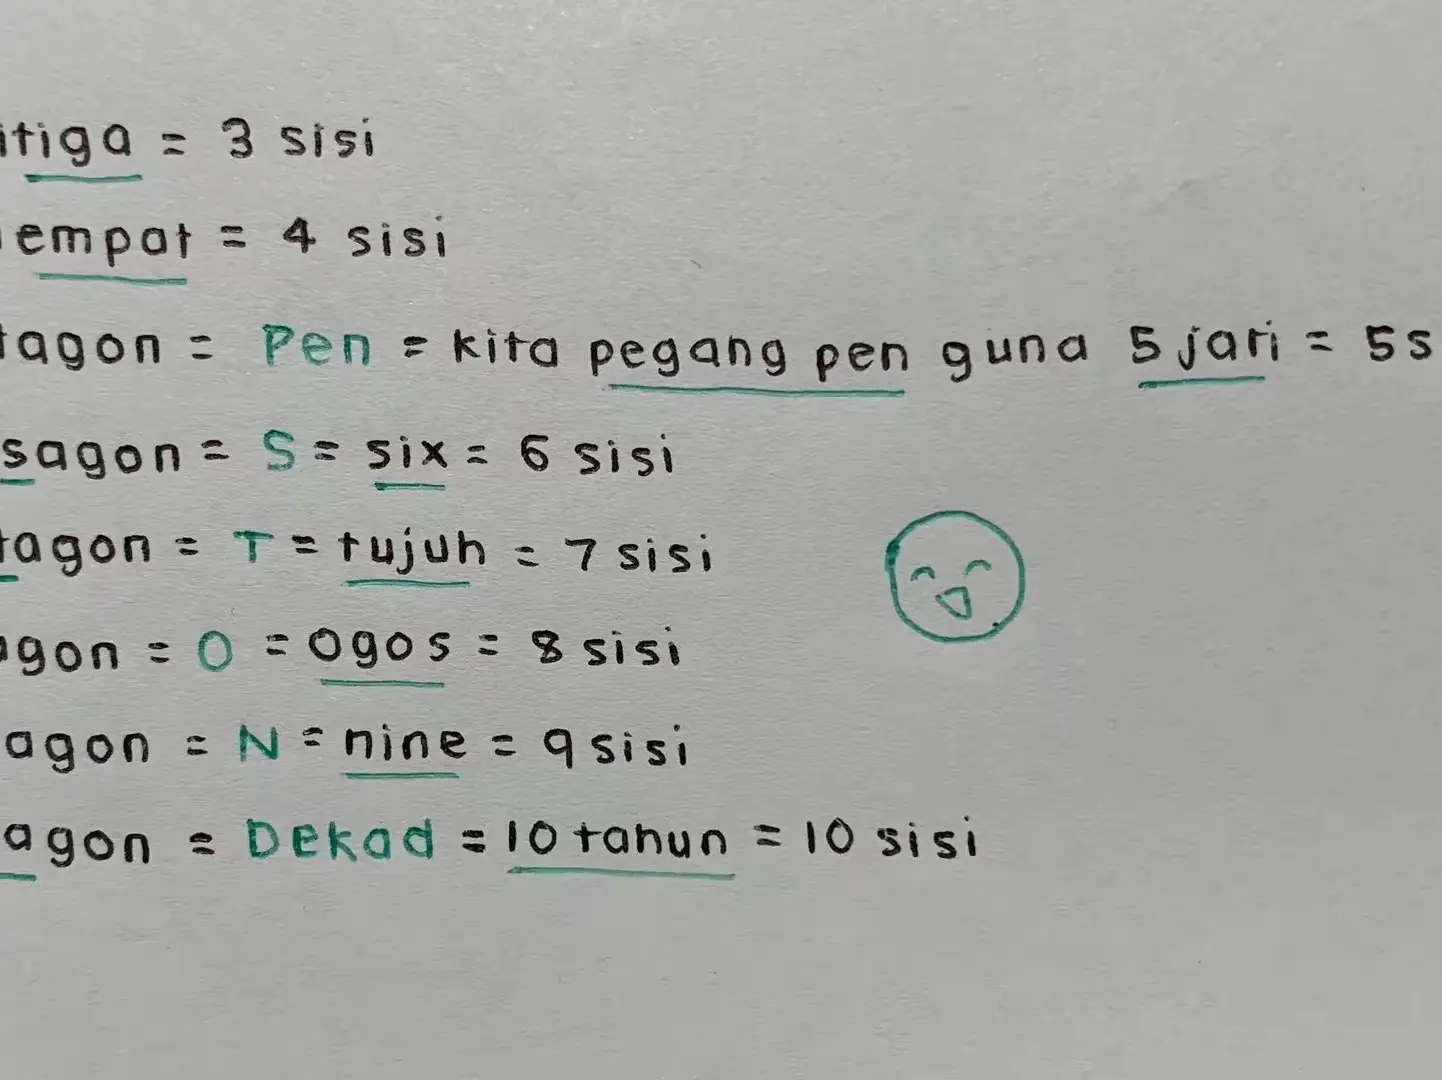 itiga = 3 sisi
empat = 4 sisi
tagon = Pen = kita pegang pen guna 5 jari = 5 s
sagon = S = six = 6 sisi
tagon = T = tujuh = 7 sisi
agon = O = Ogos = 8 sisi
agon = N = nine = 9 sisi
agon = Dekad = 10 tahun = 10 sisi